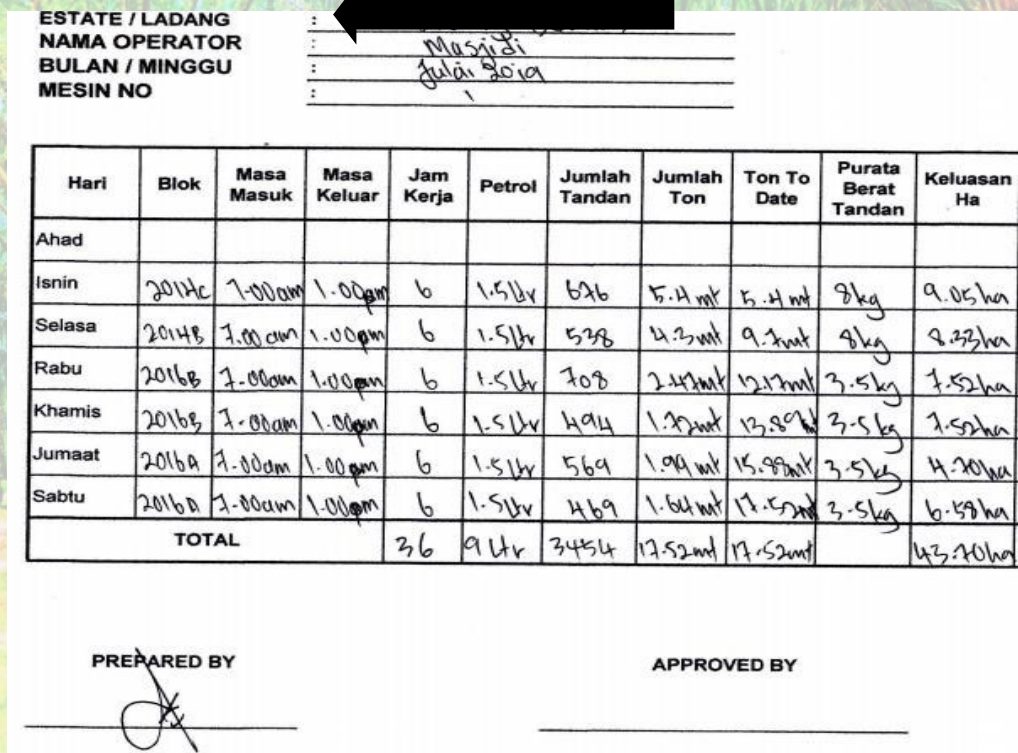 ESTATE / LADANG :
NAMA OPERATOR : Masjidi
BULAN / MINGGU : Julai 2019
MESIN NO : 1
Hari Blok Masa Masuk Masa Keluar Jam Kerja Petrol Jumlah Tandan Jumlah Ton Ton To Date Purata Berat Tandan Keluasan Ha
Ahad
Isnin 2014C 7.00am 1.00pm 6 1.5 Ltr 676 5.4 mt 5.4 mt 8kg 9.05ha
Selasa 2014B 7.00am 1.00pm 6 1.5 Ltr 538 4.3 mt 9.7mt 8kg 8.33ha
Rabu 2016B 7.00am 1.00pm 6 1.5 Ltr 708 2.47mt 12.17mt 3.5kg 7.52ha
Khamis 2016B 7.00am 1.00pm 6 1.5 Ltr 494 1.72mt 13.89mt 3.5kg 7.52ha
Jumaat 2016A 7.00am 1.00pm 6 1.5 Ltr 569 1.99 mt 15.88mt 3.5kg 4.70ha
Sabtu 2016A 7.00am 1.00pm 6 1.5 Ltr 469 1.64 mt 17.52mt 3.5kg 6.58ha
TOTAL 36 9 Ltr 3454 17.52mt 17.52mt 43.70ha
PREPARED BY APPROVED BY